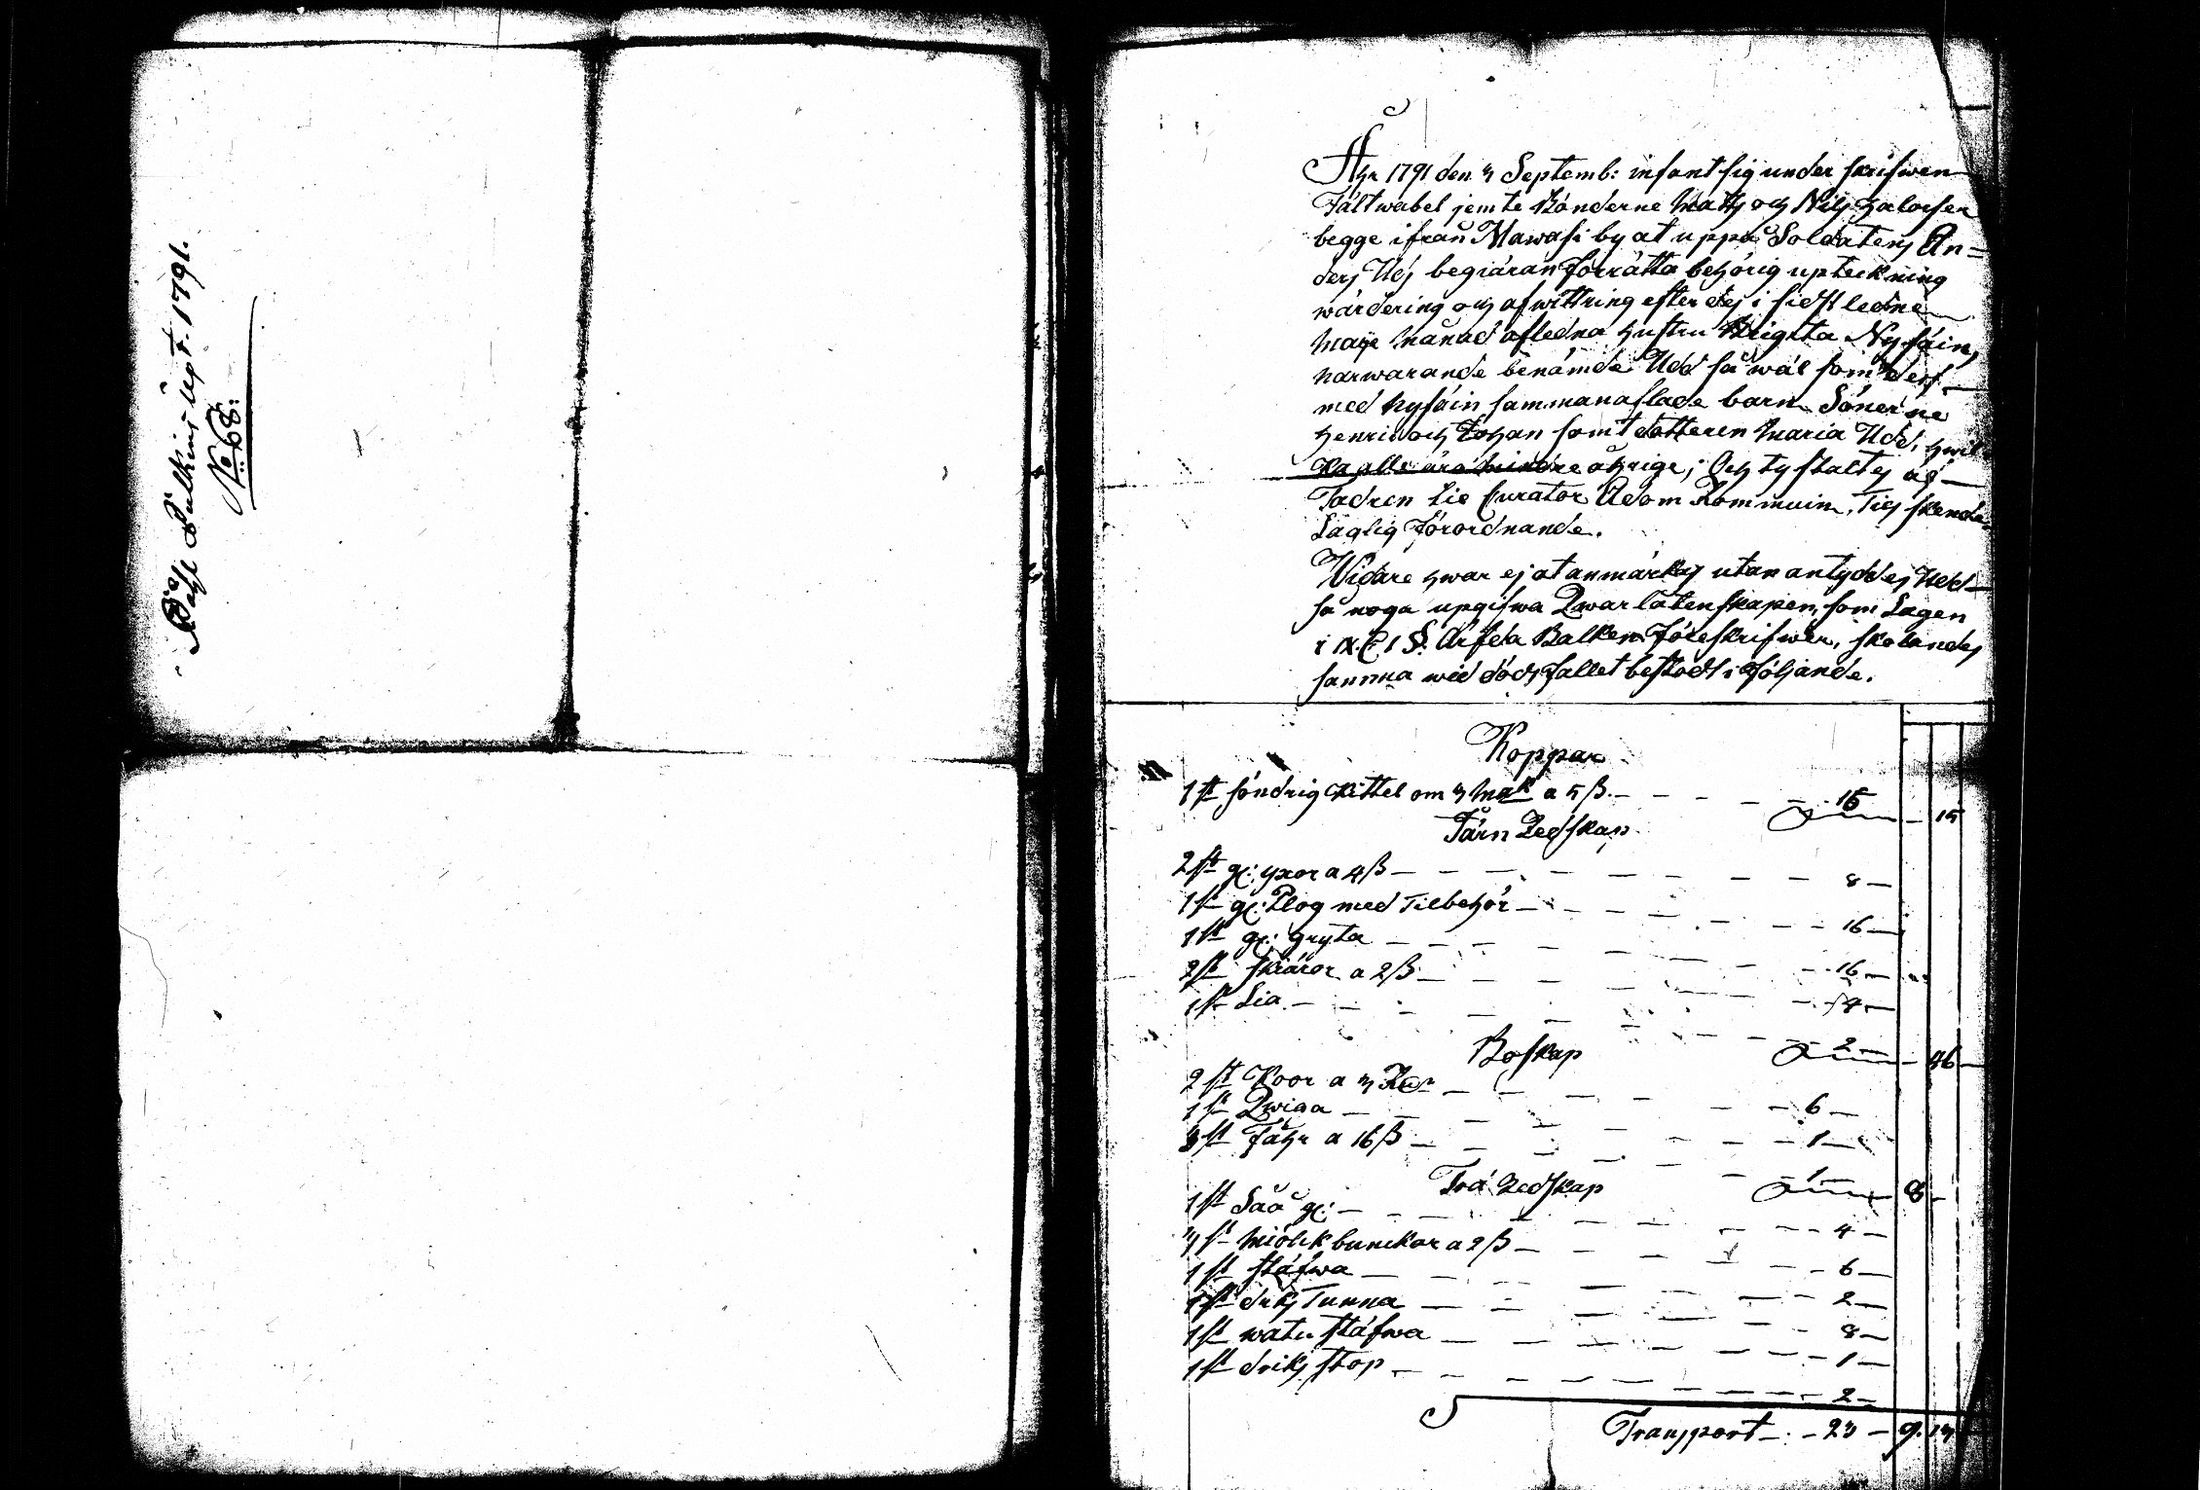 Upt. 1791.
No 68:
Åhr 1791 den 3 Septemb: infant sig underskrifwen
Fältwäbel jemte Bönderne Mats och Nils Halosen
begge ifrån Mawasi by at uppå Soldatens An=
ders Uds begiäran förrätta behörig upteckning
wärdering och afwittring efter des i sidstledne
Maye Månad afledna hustru Brigita Nysäin,
närwarande benämde Udd så wäl som dess
med Nysäin sammanaflade barn Sönerne
Henric och Johan samt dotteren Maria Udd, hwil
ka alle äro mindre åhrige; Och ty staltes af
Fadren til Curator Adam Kommuin, Tils skende
Laglig Förordnande.
Widare hwar ej at anmärkas utan antyddes Udd
så noga upgifwa Qwarlåtenskapen, som Lagen
i IX. C. 1 §. Ärfda Balken Föreskrifwer, skolandes
samma wid dödsfallet bestådt i Följande.
Koppar
1 st söndrig Kittel om 3 Mk a 5 ß. — 15
15
Järn Redskap
2 st gl: yxor a 4 ß — 8 —
1 st gl: Plog med Tilbehör — 16 —
1 st gl: gryta — 16 —
2 st skiäror a 2 ß — 4 —
1 st Lia — 2 —
46 —
Boskap
2 st Koor a 3 Rd — 6 —
1 st Qwiga — 1 —
3 st Fåhr a 16 ß — 1 —
8 —
Trä Redskap
1 st Såå gl: — 4 —
3 st Miölk bunckar a 2 ß — 6 —
1 st stäfwa — 2 —
1 st driks Tunna — 8 —
1 st watu stäfwa — 1 —
1 st driks stop — 2 —
Transport — 23 — 9. 13